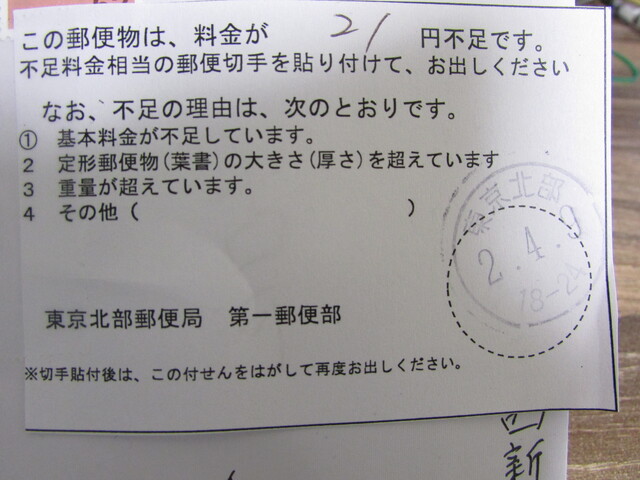 この郵便物は、料金が 21 円不足です。
不足料金相当の郵便切手を貼り付けて、お出しください
なお、不足の理由は、次のとおりです。
① 基本料金が不足しています。
2 定形郵便物(葉書)の大きさ(厚さ)を超えています
3 重量が超えています。
4 その他( )
東京北部
2.4.9
18-24
東京北部郵便局 第一郵便部
※切手貼付後は、この付せんをはがして再度お出しください。
新